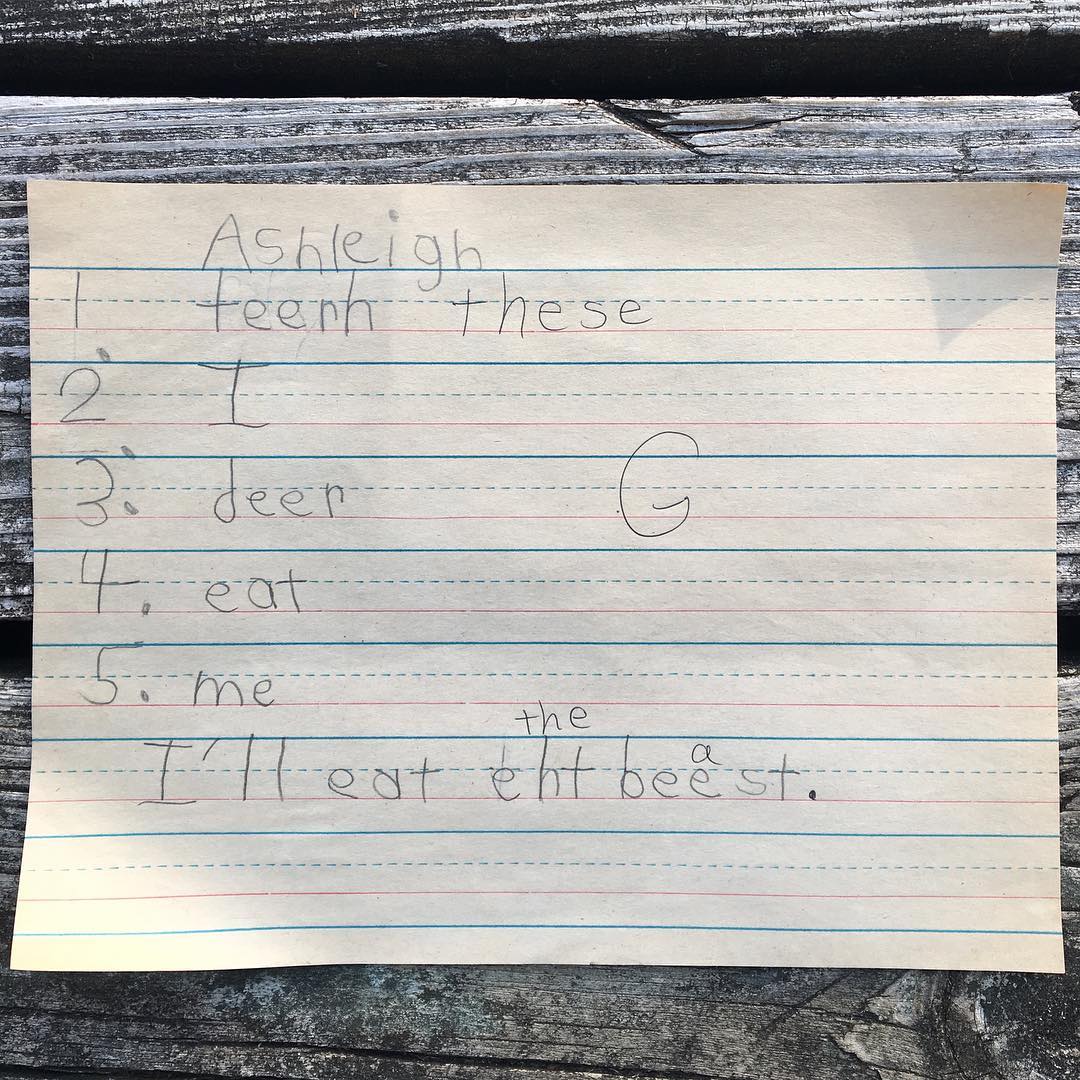 Ashleigh
1 teerh these
2. I
3. deer G
4. eat
5. me
the
a
I'll eat eht beest.